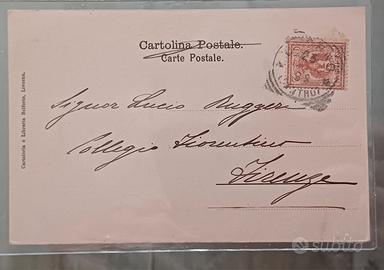 Cartolina Postale.
Carte Postale.
Signor Lucio Ruggeri
Collegio Fiorentino
Firenze
Cartoleria e Libreria Belforte, Livorno.
subito